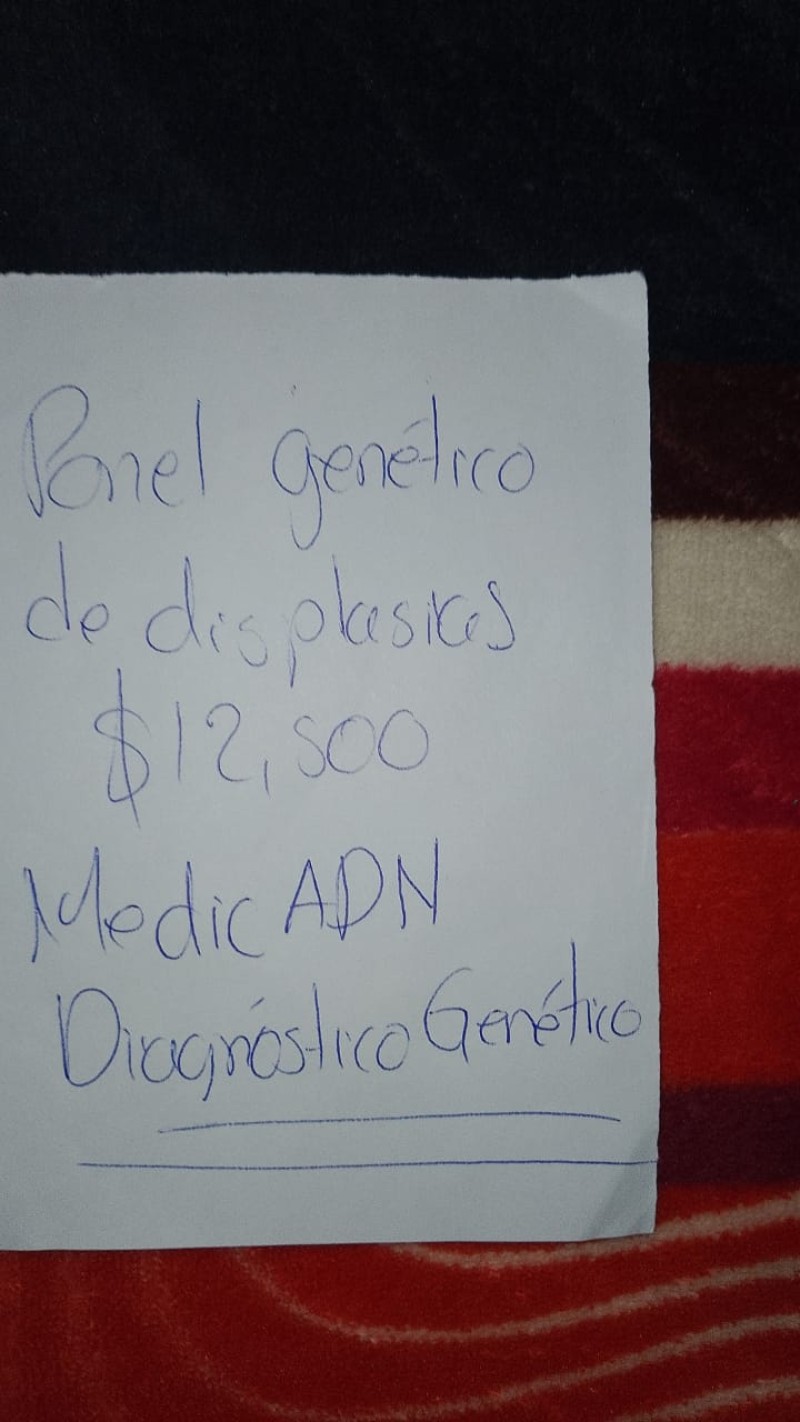 Panel genético
de displasias
$12,500
Medic ADN
Diagnóstico Genético